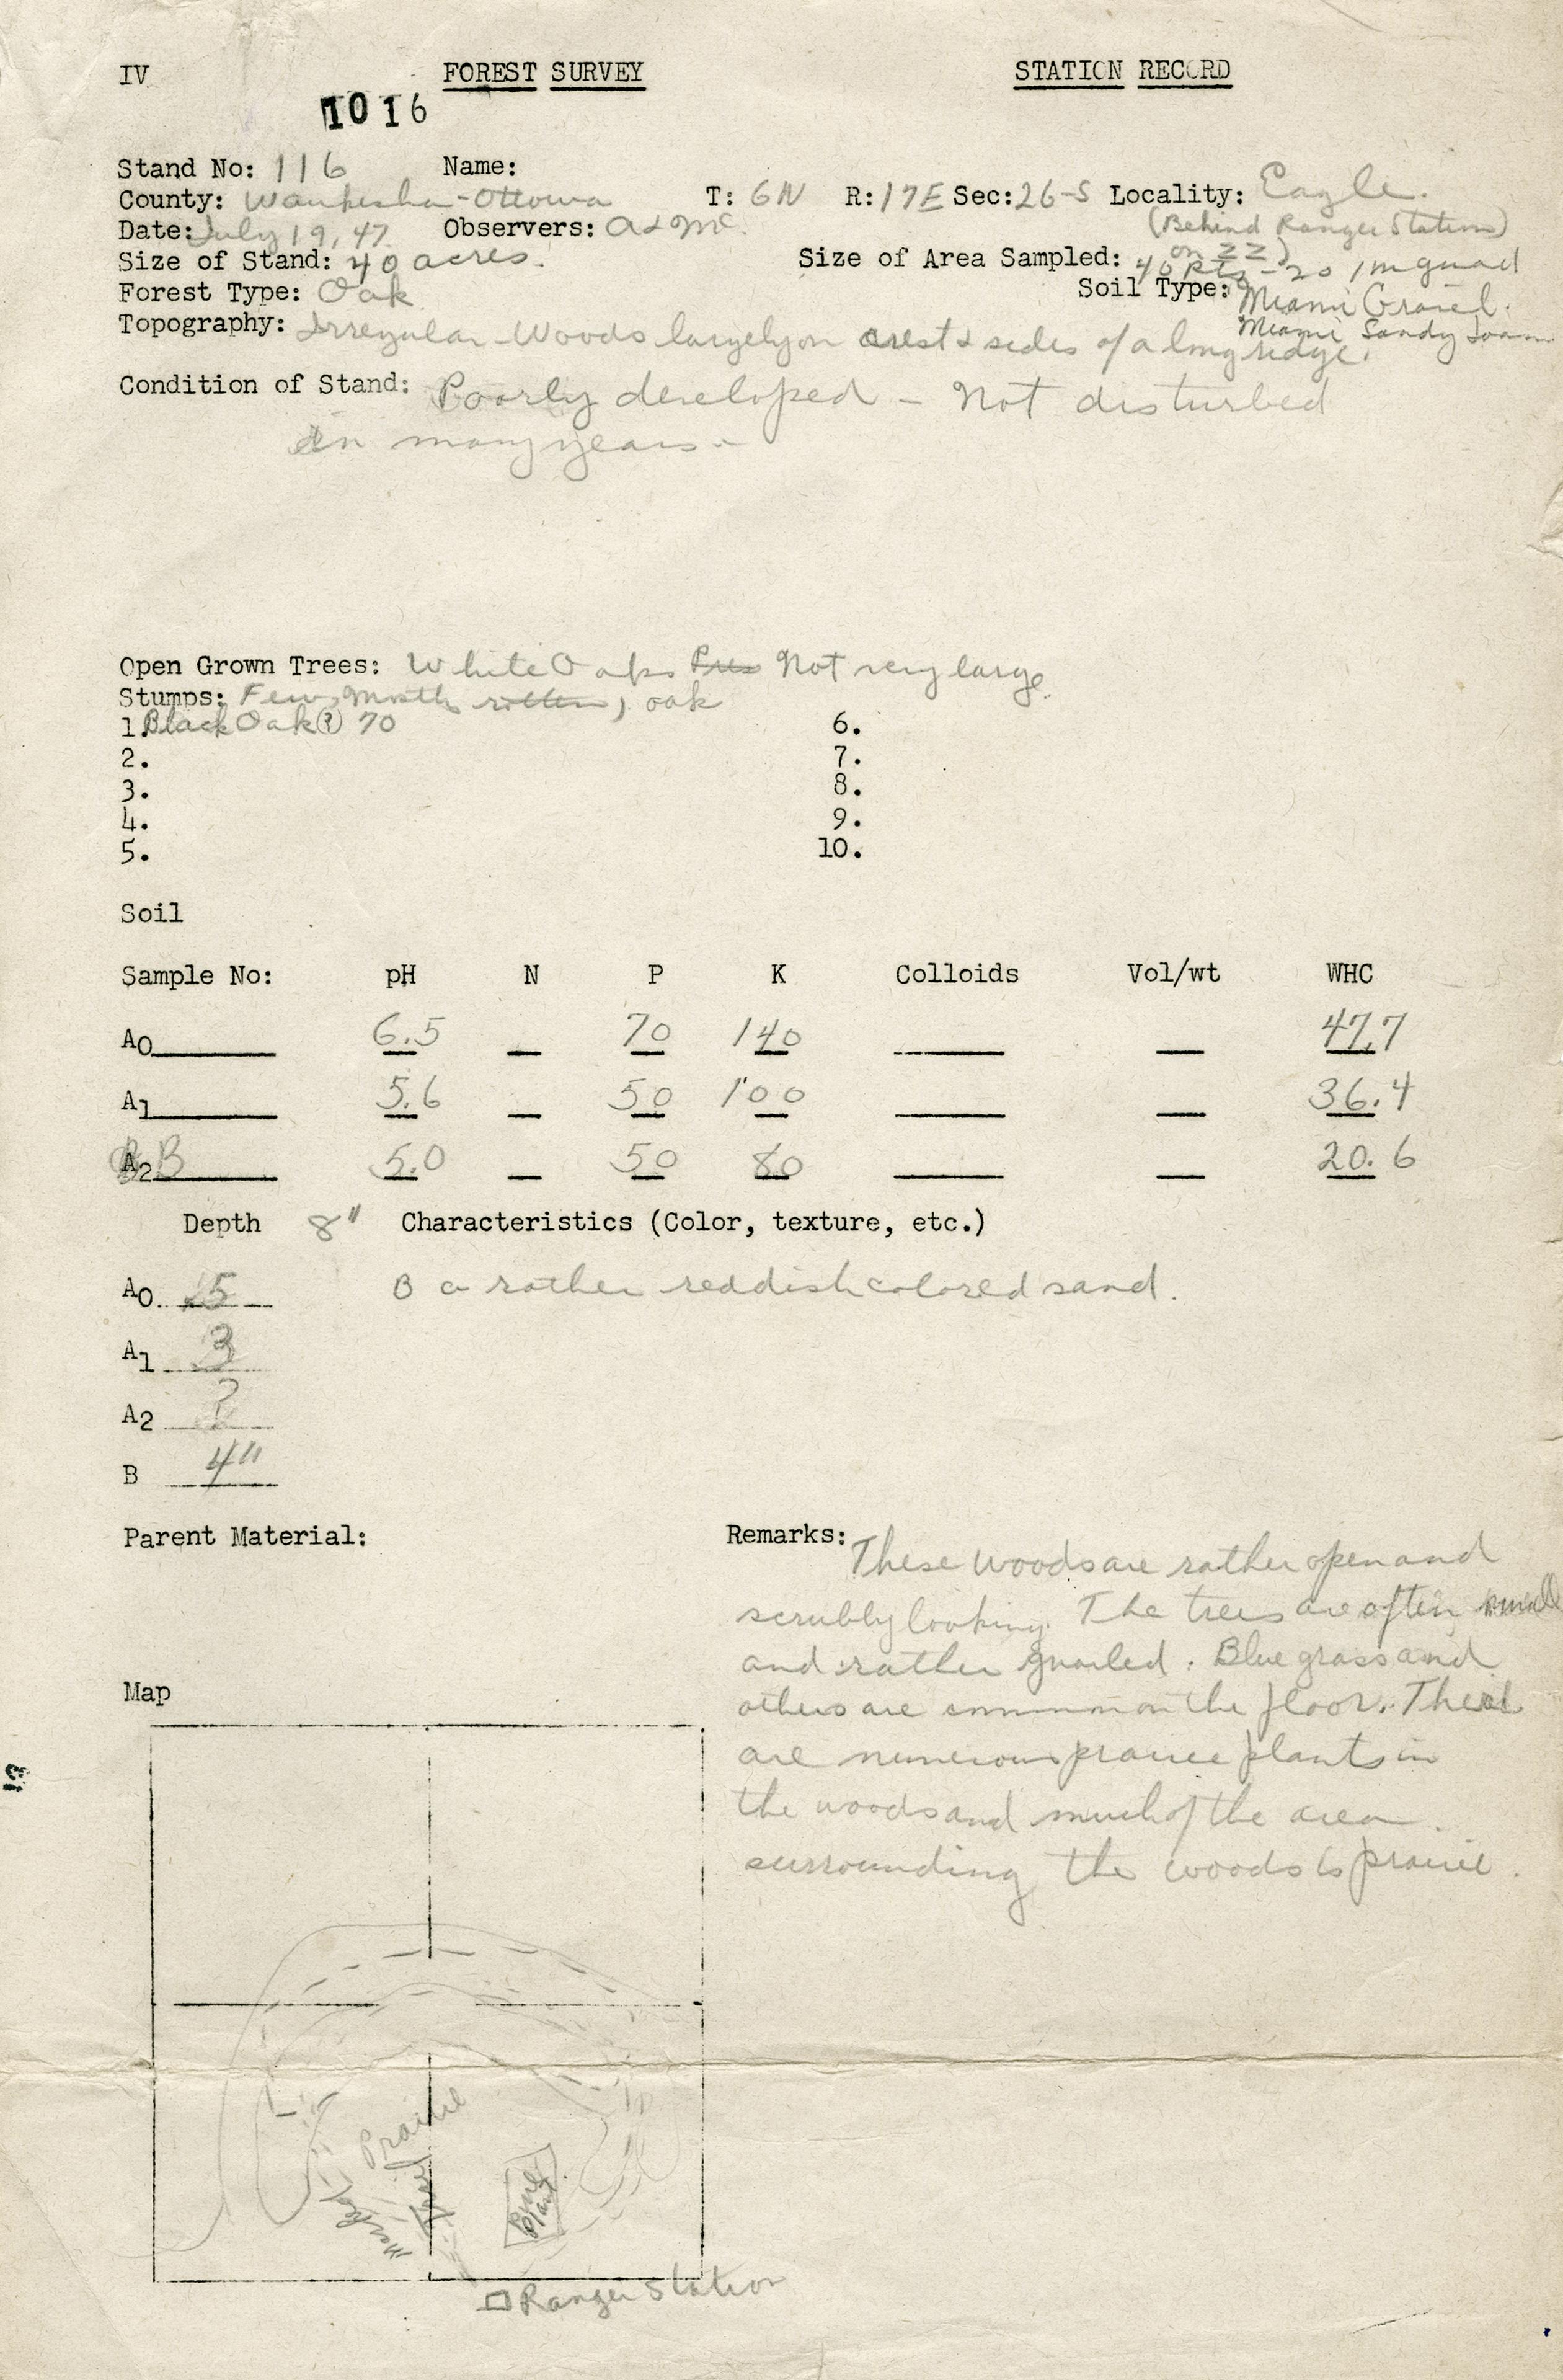 IV FOREST SURVEY STATION RECORD
1016
Stand No: 116 Name:
County: Waukesha-Ottowa T: 6N R: 17E Sec: 26-S Locality: Eagle.
(Behind Ranger Station)
on ZZ)
Date: July 19, 47 Observers: A & Mc.
Size of Stand: 40 acres. Size of Area Sampled: 40 pts - 20 1m quad
Forest Type: Oak Soil Type: Miami Gravel.
Miami Sandy Loam
Topography: Irregular - Woods largely on crest & sides of a long ridge.
Condition of Stand: Poorly developed - Not disturbed
in many years.
Open Grown Trees: White Oaks Not very large
Stumps: Few, mostly rotten, oak
1. Black Oak(?) 70 6.
2. 7.
3. 8.
4. 9.
5. 10.
Soil
Sample No: pH N P K Colloids Vol/wt WHC
A0 6.5 70 140 47.7
A1 5.6 50 100 36.4
A2 B 5.0 50 80 20.6
Depth 8" Characteristics (Color, texture, etc.)
A0 5 B a rather reddish colored sand.
A1 3
A2 ?
B 4"
Parent Material: Remarks:
These woods are rather open and
scrubby looking. The trees are often small
and rather gnarled. Blue grass and
others are common on the floor. There
are numerous prairie plants in
the woods and much of the area
surrounding the woods is prairie.
Map
Prairie
Pine
Plant
Ranger Station